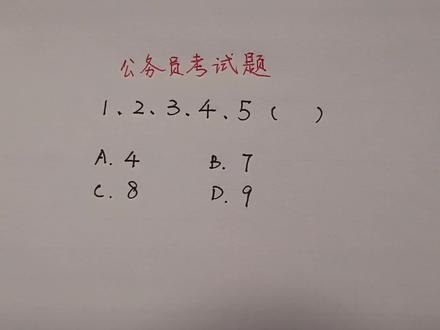 公务员考试题
1、2、3、4、5（　）
A. 4　B. 7
C. 8　D. 9